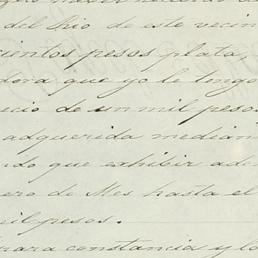 del Rio de este vecin
cientos pesos plata,
dora que yo le tengo
ecio de un mil pesos
adquerida median
do que exhibir ade
ero de Mes hasta el
mil pesos.
para constancia y lo